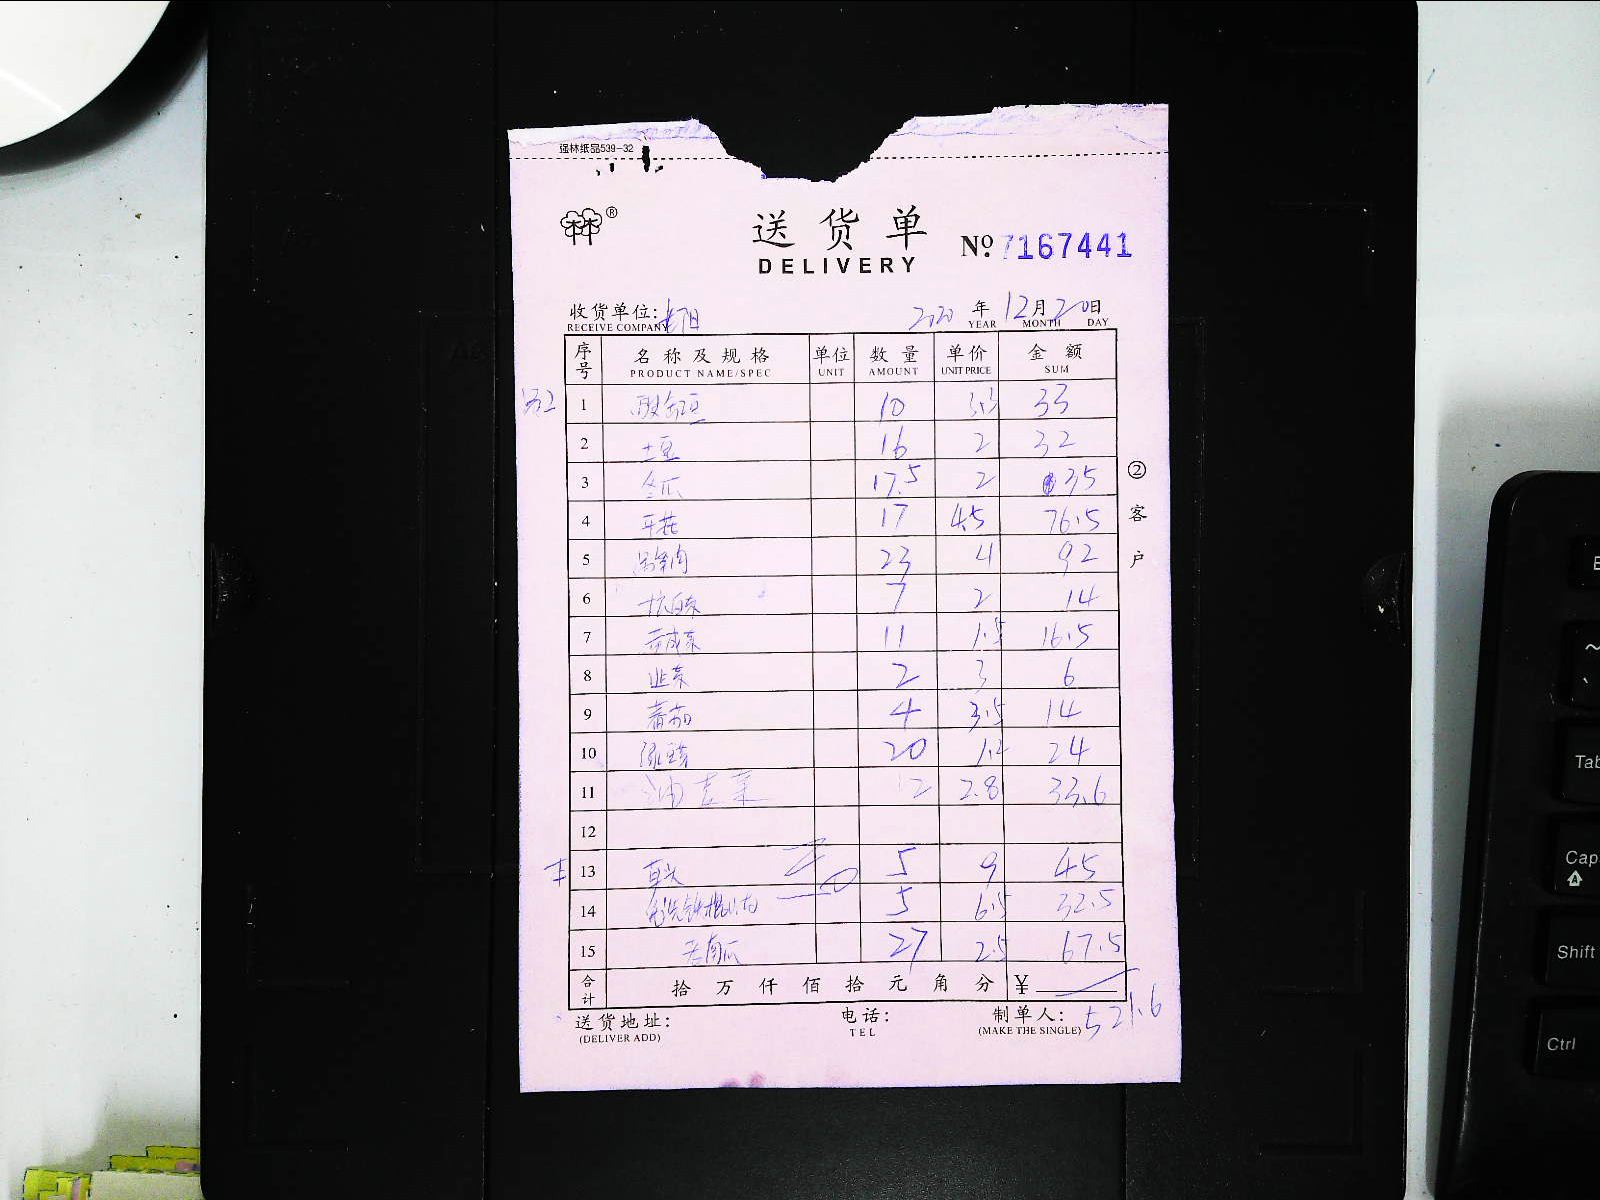 强林纸品539-32
林 ®
送货单 Nº 7167441
DELIVERY
收货单位: 2020年12月20日
RECEIVE COMPANY YEAR MONTH DAY
序号 名称及规格 单位 数量 单价 金额
PRODUCT NAME/SPEC UNIT AMOUNT UNIT PRICE SUM
1 酸豇豆 10 3.3 33
2 土豆 16 2 32
3 冬瓜 17.5 2 35
4 17 4.5 76.5
5 23 4 92
6 杭白菜 7 2 14
7 11 1.5 16.5
8 韭菜 2 3 6
9 蕃茄 4 3.5 14
10 20 1.2 24
11 油麦菜 12 2.8 33.6
12
13 5 9 45
14 5 6.5 32.5
15 老南瓜 27 2.5 67.5
合计 拾 万 仟 佰 拾 元 角 分 ¥
521.6
送货地址: 电话: 制单人:
(DELIVER ADD) TEL (MAKE THE SINGLE)
② 客户
Tab
Caps
Shift
Ctrl